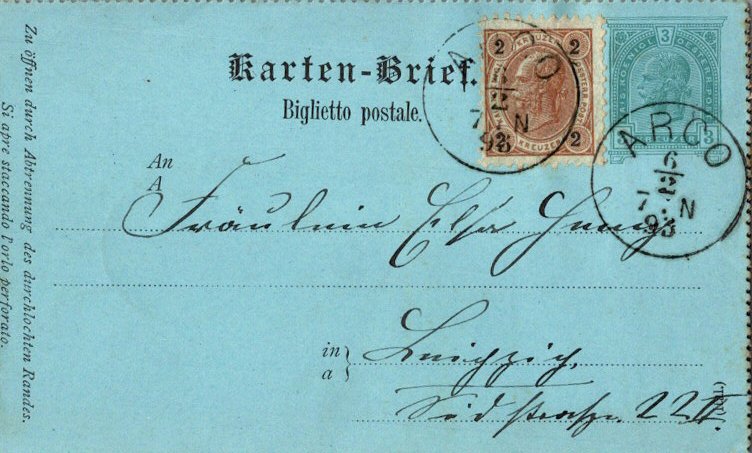 Karten-Brief.
Biglietto postale.
2 2
2 KREUZER 2
3
3 3
ARCO
6/2
7 N
93
ARCO
6/2
7 N
93
An
A
Fräulein Elsa
in
a
Leipzig,
Südstrasse 22 II.
Zu öffnen durch Abtrennung des durchlochten Randes.
Si apre staccando l'orlo perforato.